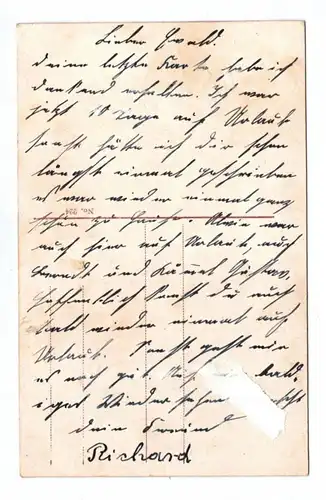 Lieber Ewald.
deine letzte Karte habe ich
dankend erhalten. Ich war
jetzt 10 Tage auf Urlaub
sonst hätte ich dir schon
längst einmal geschrieben
es war wieder einmal ganz
No. 924
schön zu Hause. Alwin war
auch hier auf Urlaub auch
und Gustav,
Hoffentlich kommst du auch
bald wieder einmal auf
Urlaub. Sonst geht mir
es noch gut. bald.
iges Wiedersehen
dein Freund
Richard